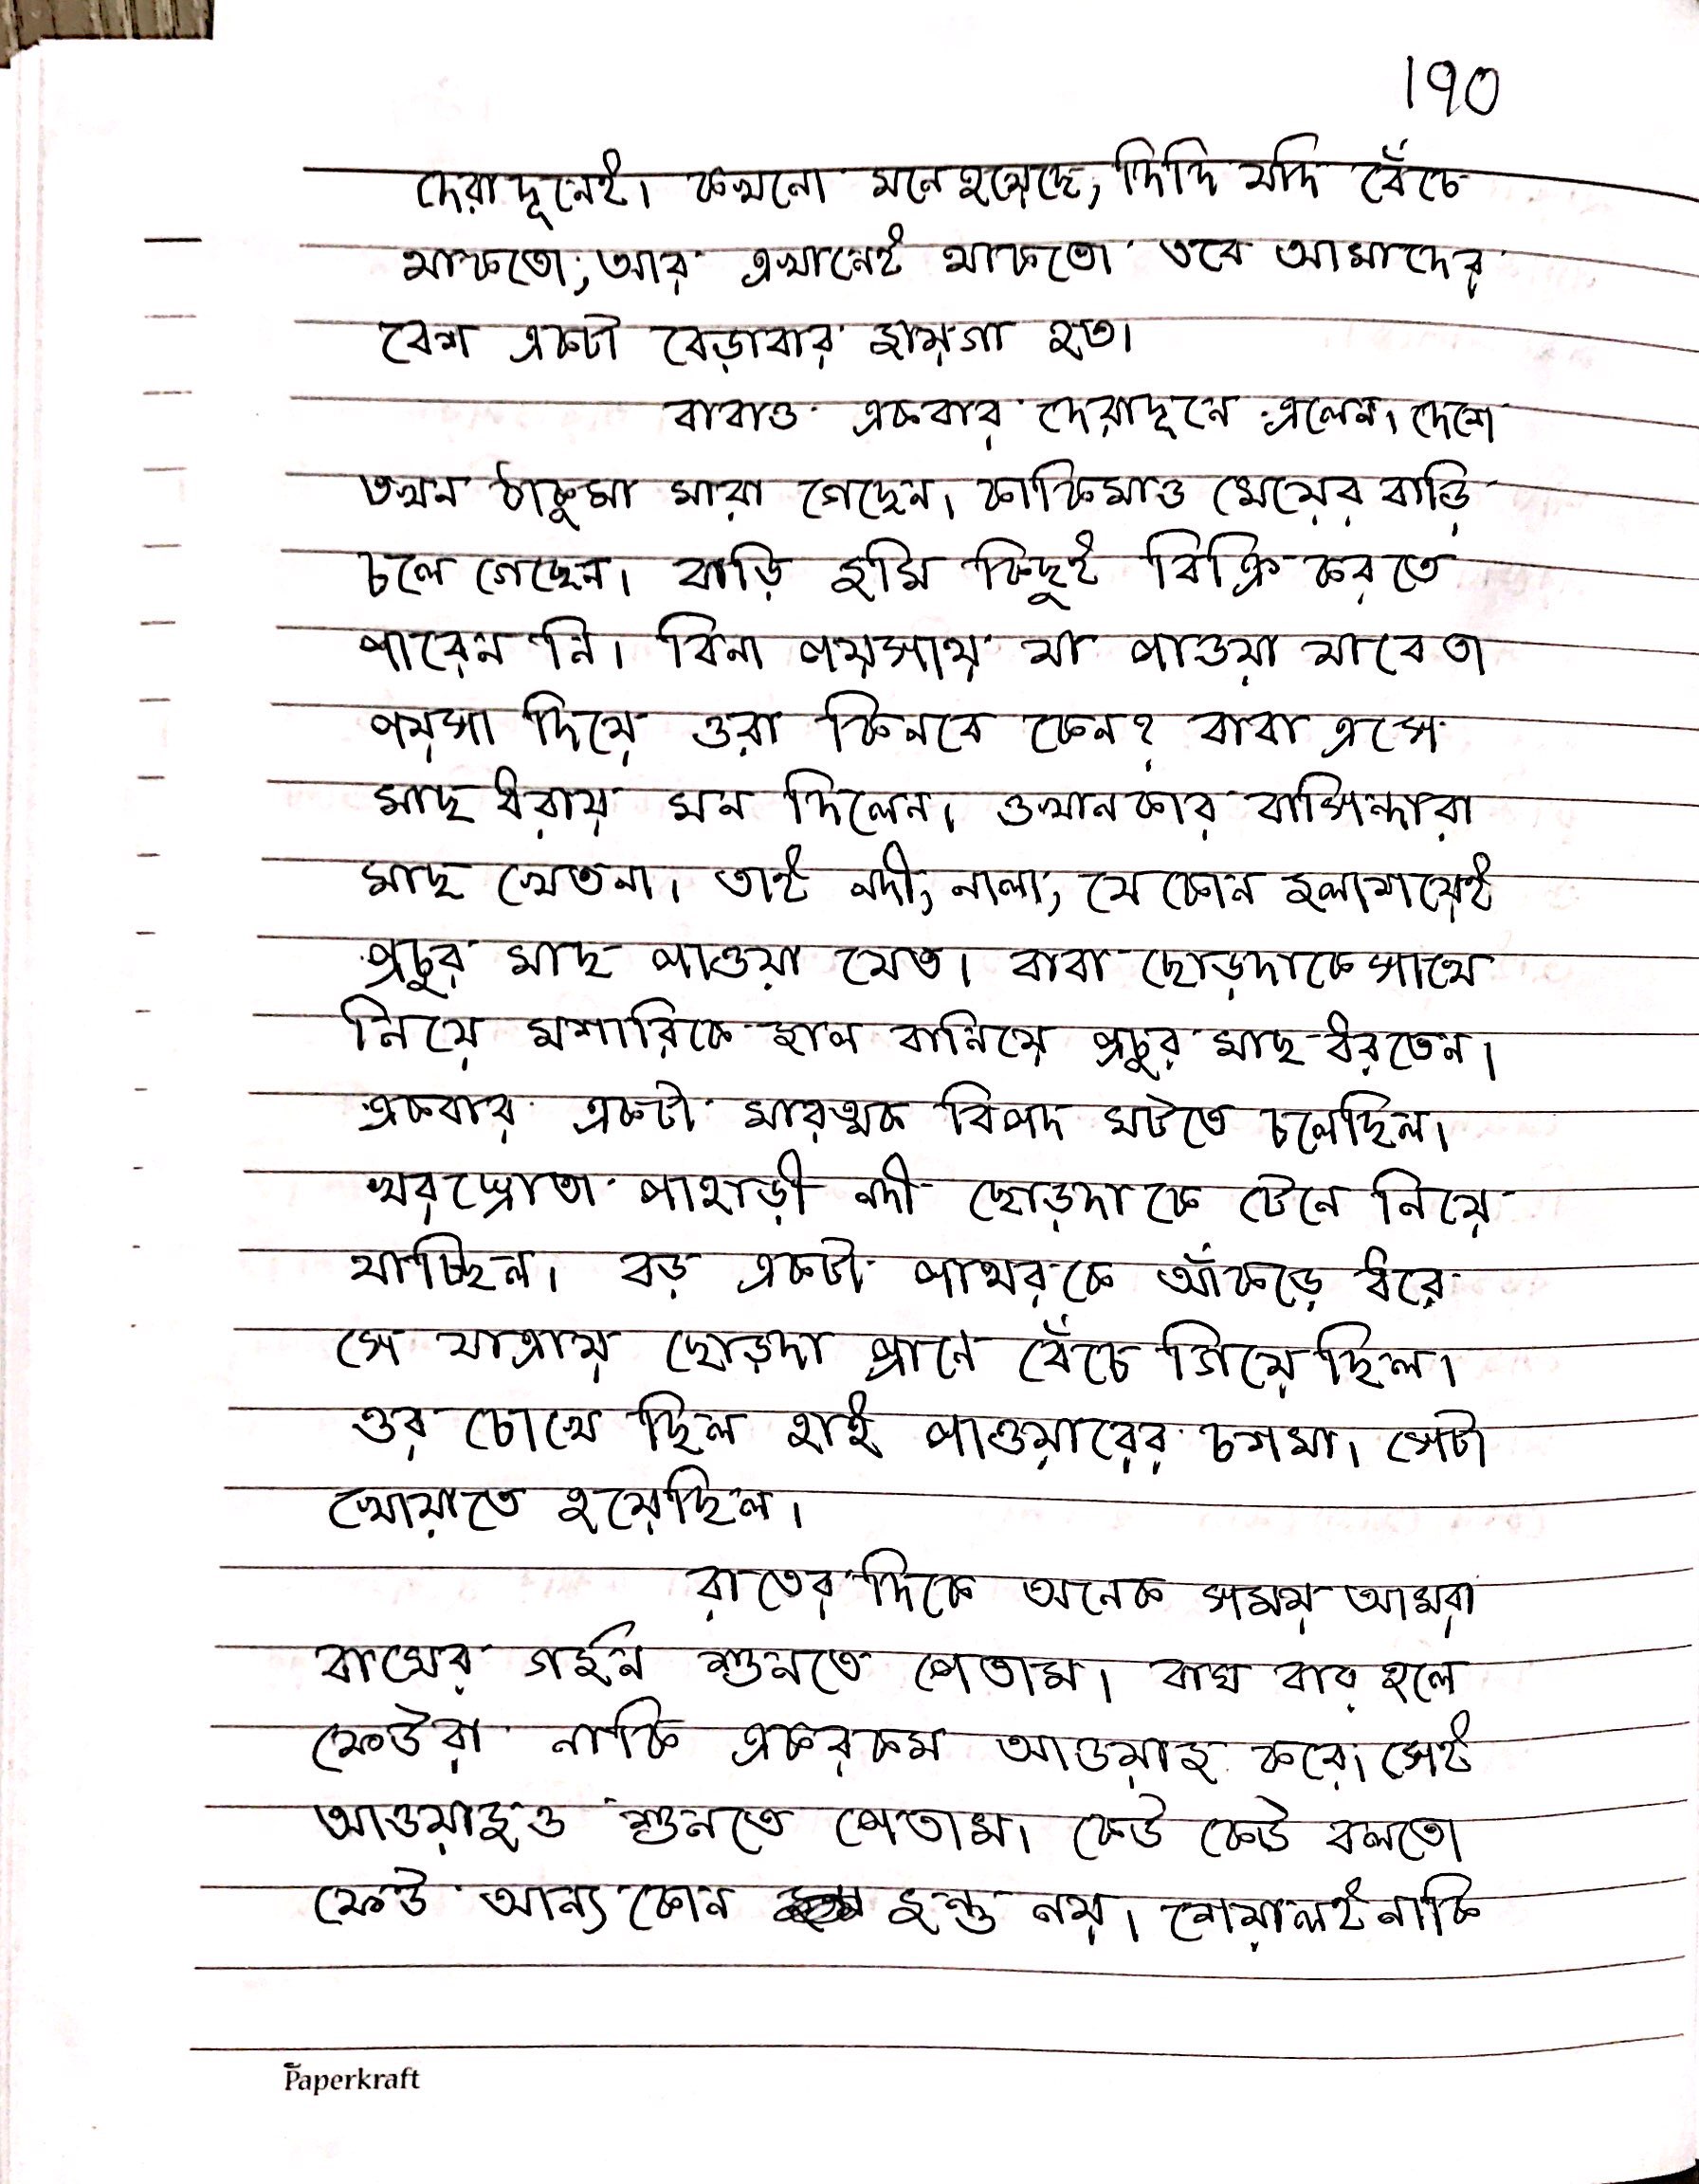 ১৭০
দেরাদূনেই। কখনো মনে হয়েছে, দিদি যদি বেঁচে
থাকতো, আর এখানেই থাকতো তবে আমাদের
বেশ একটা বেড়াবার জায়গা হত।
বাবাও একবার দেরাদূনে এলেন। দেশে
তখন ঠাকুমা মারা গেছেন। কাকিমাও মেয়ের বাড়ি
চলে গেছেন। বাড়ি জমি কিছুই বিক্রি করতে
পারেন নি। বিনা পয়সায় যা পাওয়া যাবে তা
পয়সা দিয়ে ওরা কিনবে কেন? বাবা এসে
মাছ ধরায় মন দিলেন। ওখানকার বাসিন্দারা
মাছ খেতনা। তাই নদী, নালা, যে কোন জলাশয়েই
প্রচুর মাছ পাওয়া যেত। বাবা ছোড়দাকে সাথে
নিয়ে মশারিকে জাল বানিয়ে প্রচুর মাছ ধরতেন।
একবার একটা মারত্মক বিপদ ঘটতে চলেছিল।
খরস্রোতা পাহাড়ী নদী ছোড়দাকে টেনে নিয়ে
যাচ্ছিল। বড় একটা পাথরকে আঁকড়ে ধরে
সে যাত্রায় ছোড়দা প্রানে বেঁচে গিয়েছিল।
ওর চোখে ছিল হাই পাওয়ারের চশমা। সেটা
খোয়াতে হয়েছিল।
রাতের দিকে অনেক সময় আমরা
বাঘের গর্জন শুনতে পেতাম। বাঘ বার হলে
ফেউরা নাকি একরকম আওয়াজ করে। সেই
আওয়াজও শুনতে পেতাম। কেউ কেউ বলতো
ফেউ আন্য কোন জন্তু নয়। শেয়ালই নাকি
Paperkraft